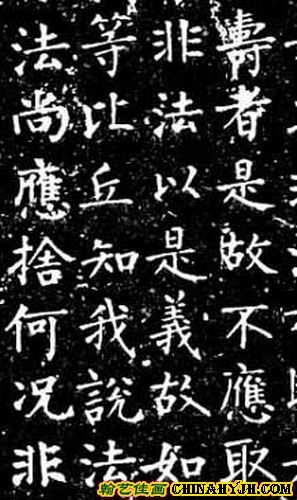 壽者是故不應取
非法以是義故如
等比丘知我說法
法尚應捨何況非
翰艺佳画 CHINAHYJH.COM